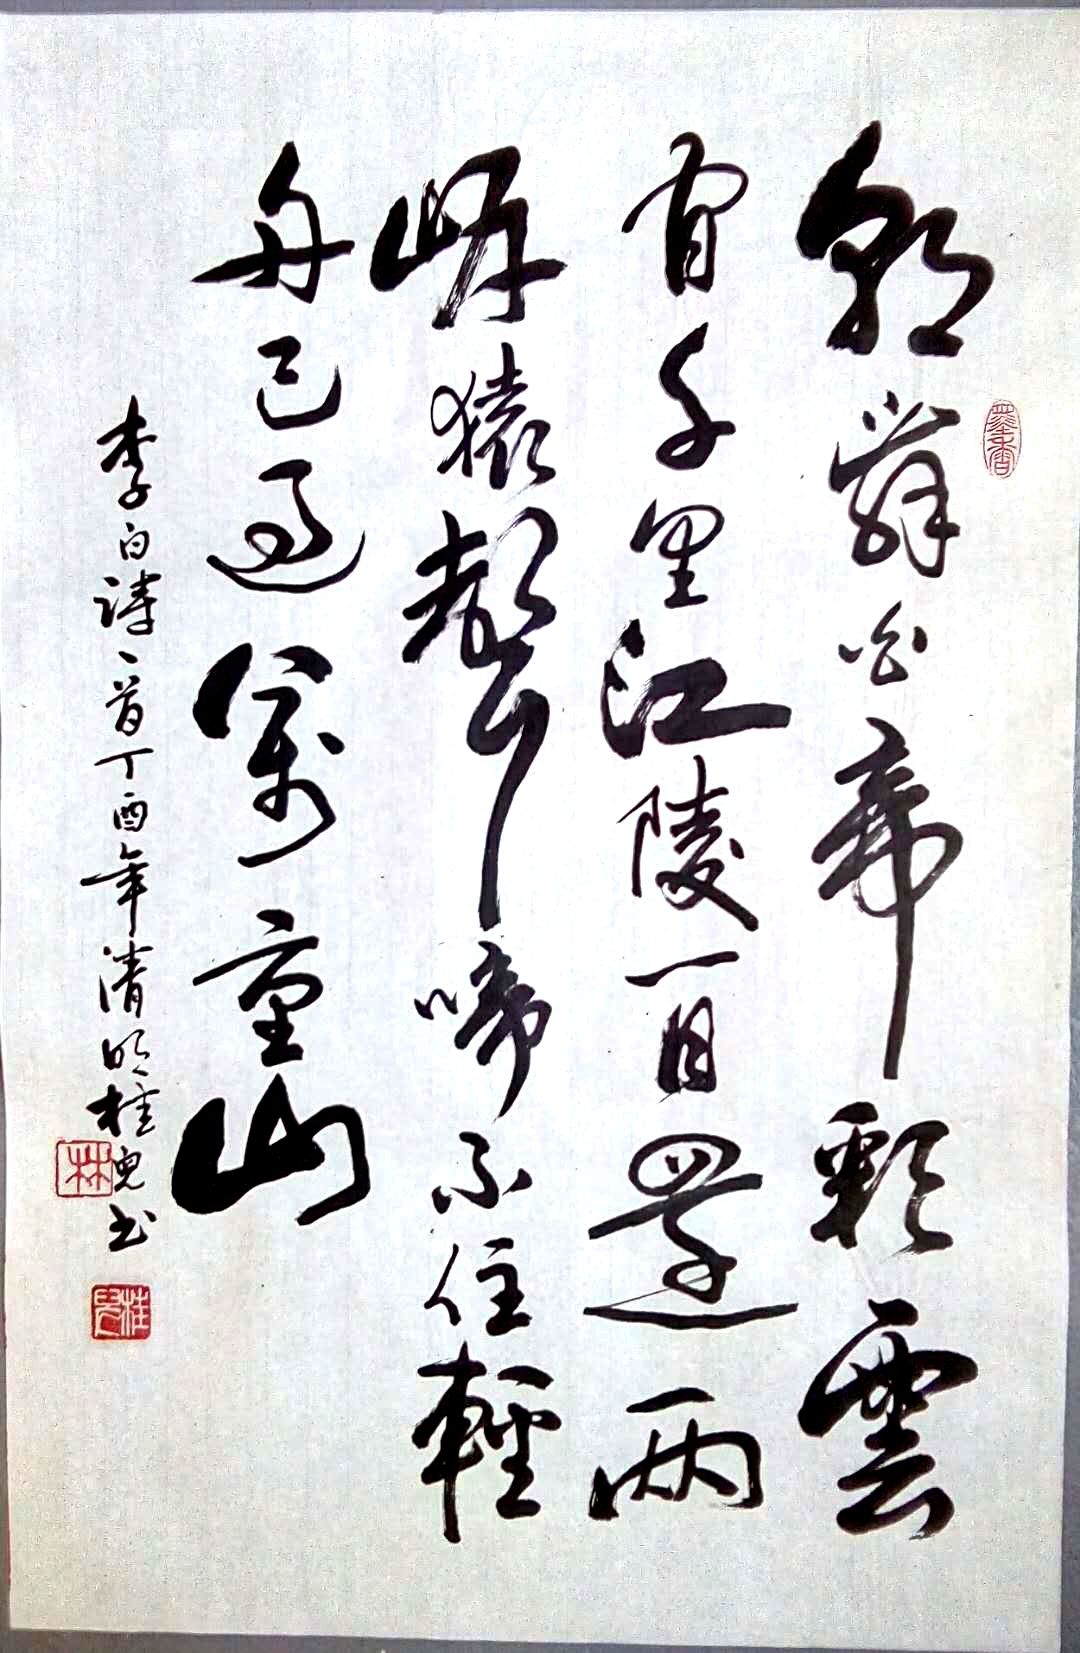 朝辞白帝彩雲
间千里江陵一日還兩
岸猿聲啼不住輕
舟已過萬重山
李白詩一首丁酉年清明桂兒书
墨香
林
桂兒